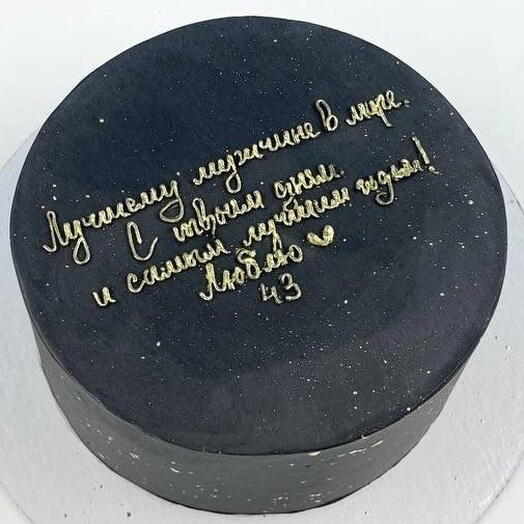 Лучшему мужчине в мире.
С твоим днём
и самым лучшим годом!
Люблю
43